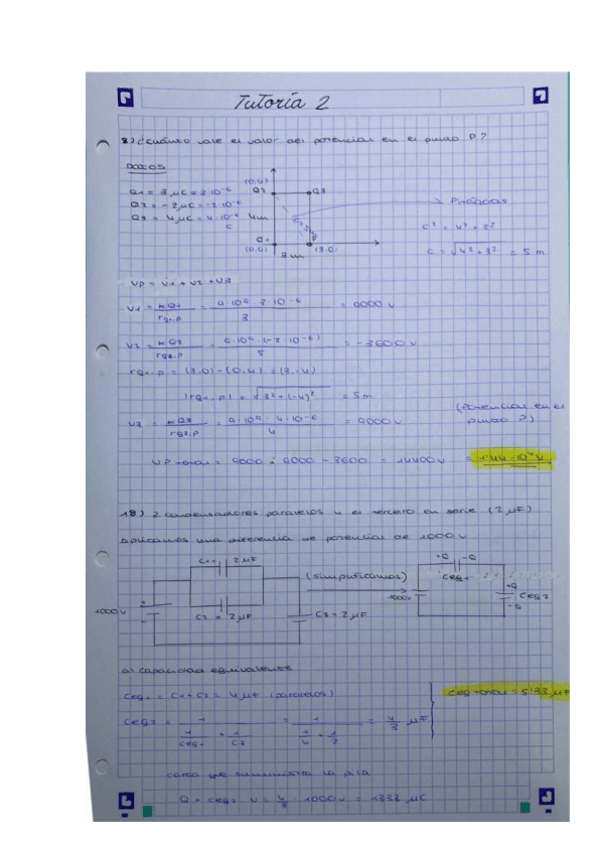 Tutoría 2
8) ¿Cuánto vale el valor del potencial en el punto P?
DATOS
Q1 = 3 μC = 3·10⁻⁶
Q2 = -2 μC = -2·10⁻⁶
Q3 = 4 μC = 4·10⁻⁶ C
(0,4)
Q2
Q3
4m
Q1
(0,0)
(3,0)
3m
Pitágoras
c² = 4² + 3²
c = √4² + 3² = 5 m
VP = V1 + V2 + V3
V1 = KQ1 / rQ1.P = 9·10⁹·3·10⁻⁶ / 3 = 9000 V
V2 = KQ2 / rQ2.P = 9·10⁹·(-2·10⁻⁶) / 5 = -3600 V
rQ2.P = (3,0) - (0,4) = (3,-4)
|rQ2.P| = √3² + (-4)² = 5m
V3 = KQ3 / rQ3.P = 9·10⁹·4·10⁻⁶ / 4 = 9000 V
(Potencial en el punto P)
VP total = 9000 + 9000 - 3600 = 14400 V = 1'44·10⁴ V
18) 2 condensadores paralelos y el tercero en serie (2 μF)
Aplicamos una diferencia de potencial de 1000 V
C1 = 2 μF
1000 V
C2 = 2 μF
C3 = 2 μF
(simplificamos)
+Q -Q
Ceq1
1000V
+Q
Ceq2
-Q
a) capacidad equivalente
Ceq1 = C1 + C2 = 4 μF (paralelos)
Ceq2 = 1 / (1/Ceq1 + 1/C3) = 1 / (1/4 + 1/2) = 4/3 μF
Ceq total = 5'33 μF
carga que suministra la pila
Q = Ceq2 · V = 4/3 · 1000 V = 1333 μC